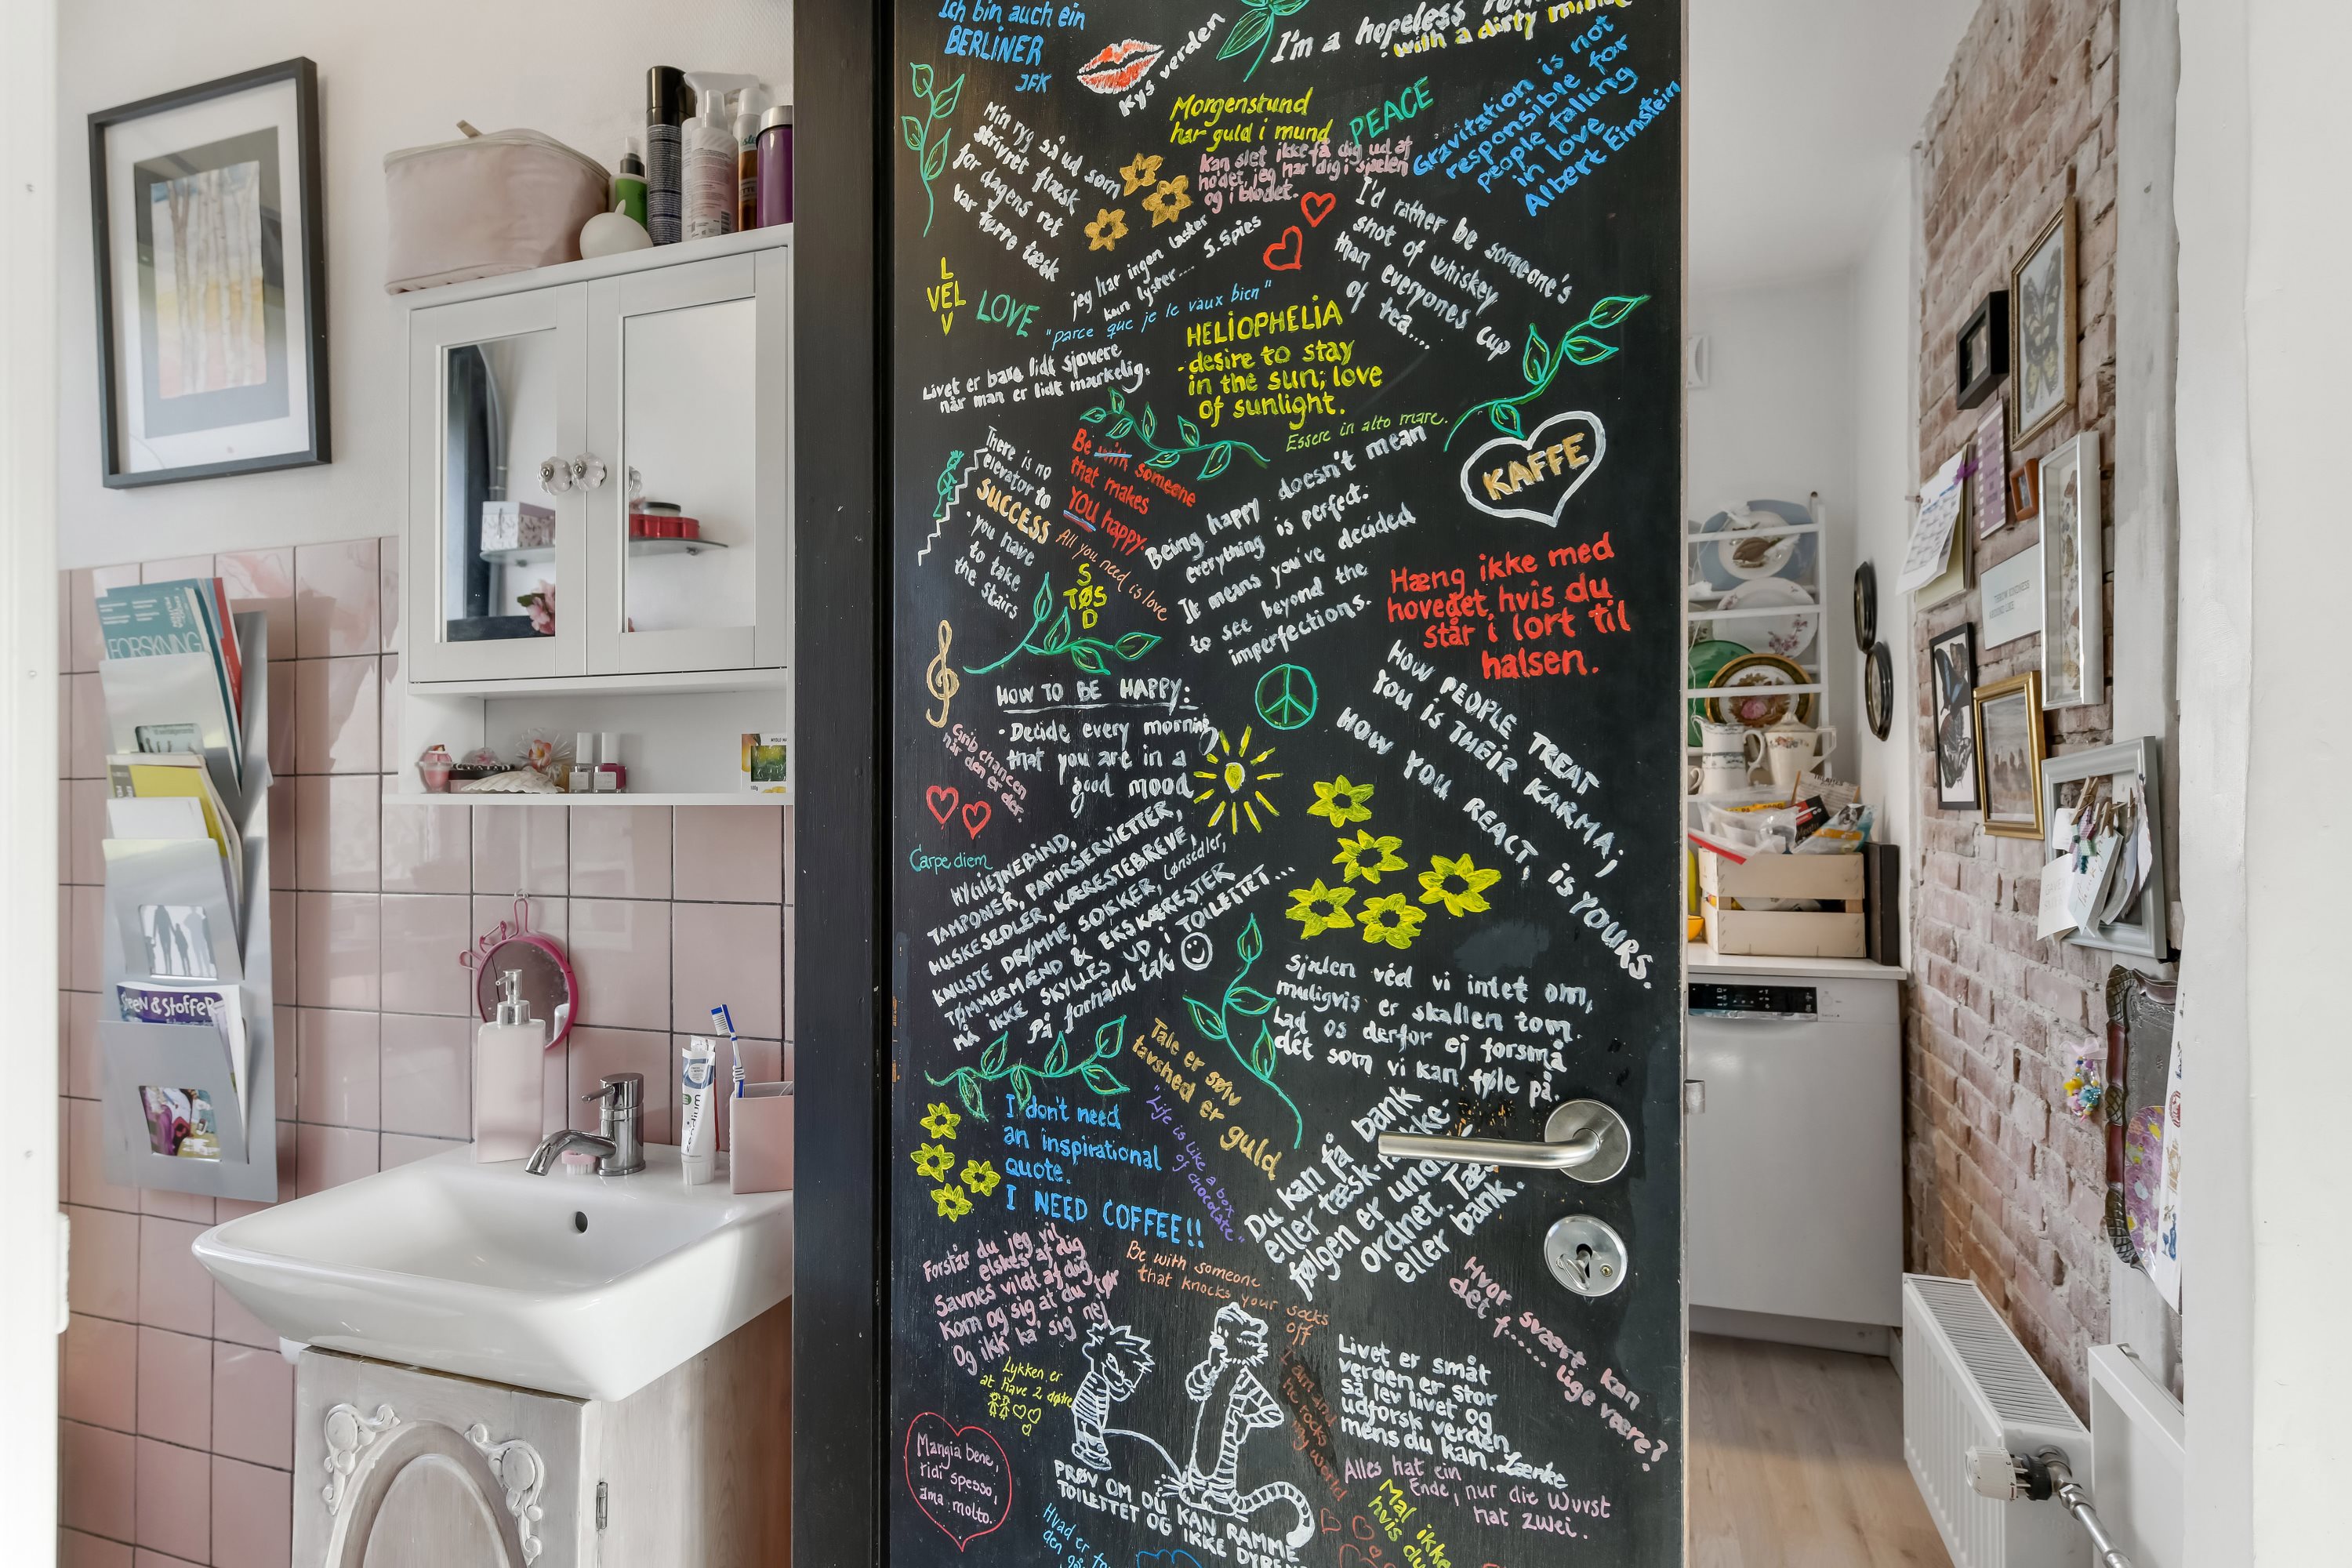 Ich bin auch ein
BERLINER
JFK
Kys verden
I'm a hopeless
with a dirty mind
Morgenstund
har guld i mund
PEACE
Gravitation is not
responsible for
people falling
in love
Albert Einstein
Min ryg så ud som
skrivret flæsk
for dagens ret
var tørre tæsk
Kan slet ikke få dig ud af
hodet, jeg har dig i sjælen
og i blodet.
I'd rather be someone's
shot of whiskey
than everyones cup
of tea....
jeg har ingen laster
kun lyster.... S. Spies
L
VEL
V
LOVE
"parce que je le vaux bien"
HELIOPHELIA
-desire to stay
in the sun; love
of sunlight.
Livet er bare lidt sjovere
når man er lidt mærkelig.
Essere in alto mare.
KAFFE
There is no
elevator to
SUCCESS
- you have
to take
the stairs
Be with someone
that makes
YOU happy.
All you need is love
S
TØS
D
Being happy doesn't mean
everything is perfect.
It means you've decided
to see beyond the
imperfections.
Hæng ikke med
hovedet, hvis du
står i lort til
halsen.
HOW TO BE HAPPY:
• Decide every morning
that you are in a
good mood
HOW PEOPLE TREAT
YOU iS THEiR KARMA;
HOW YOU REACT, iS YOURS.
Grib chancen
når den er der.
Carpe diem
HYGIEJNEBIND,
TAMPONER, PAPIRSERVIETTER,
HUSKESEDLER, KÆRESTEBREVE,
KNUSTE DRØMME, SOKKER, Lønsedler,
TØMMERMÆND & EKSKÆRESTER
MÅ IKKE SKYLLES UD i TOILETTET...
På forhånd tak
Sjælen véd vi intet om,
muligvis er skallen tom.
Lad os derfor ej forsmå
dét som vi kan føle på.
Tale er sølv
tavshed er guld
"Life is like a box
of chocolate"
I don't need
an inspirational
quote.
I NEED COFFEE!!
Du kan få bank
eller tæsk
følgen er
ordnet.
eller bank.
Forstår du jeg vil
elskes af dig
Savnes vildt af dig
Kom og sig at du tør
Og ikk' ka' sig nej
Be with someone
that knocks your socks
off
Hvor svært kan
det f..... lige være?
Lykken er
at have 2 døtre
I am and
he rocks
my world
Livet er småt
verden er stor
så lev livet og
udforsk verden
mens du kan. Lænke
Mangia bene,
ridi spesso,
ama molto.
PRØV OM DU KAN RAMME
TOILETTET OG IKKE
Alles hat ein
Ende, nur die Wurst
hat zwei.
Mal ikke
hvis du
Hvad er
FORSKNING
STEEN & STOFFER